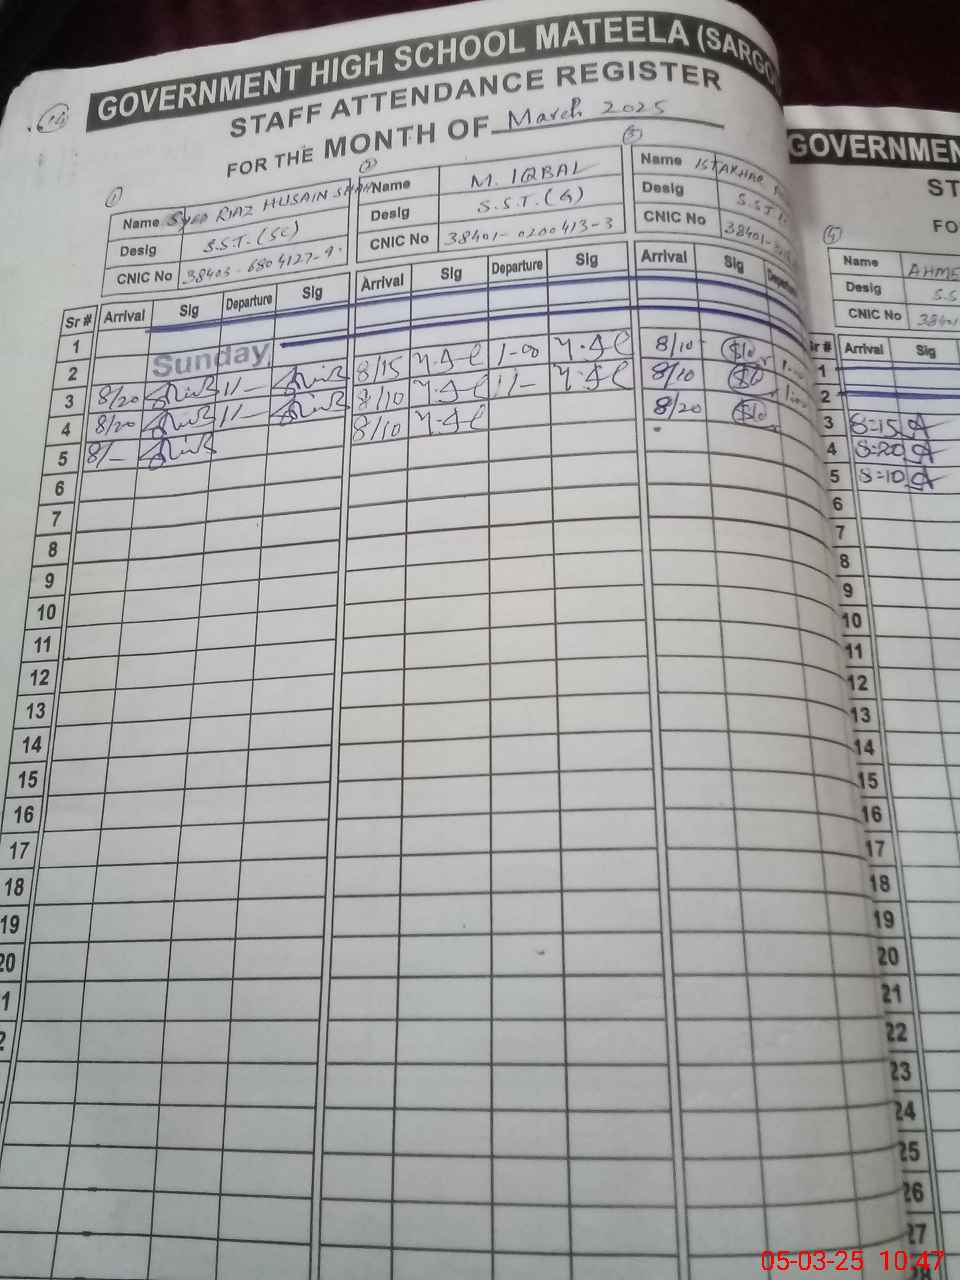 14
GOVERNMENT HIGH SCHOOL MATEELA (SARGO
STAFF ATTENDANCE REGISTER
FOR THE MONTH OF March 2025
1
Name SYED RIAZ HUSAIN SHAH
Desig S.S.T.(SC)
CNIC No 38403-6804127-9.
2
Name M. IQBAL
Desig S.S.T.(G)
CNIC No 38401-0200413-3
3
Name
Desig S.S.T.
CNIC No 38401-
Sr # Arrival Sig Departure Sig Arrival Sig Departure Sig Arrival Sig Departure
1
2 Sunday
3 8/20 1/- 8/15 1-00 8/10
4 8/20 1/- 8/10 1/- 8/10
5 8/- 8/10 8/20
6
7
8
9
10
11
12
13
14
15
16
17
18
19
20
1
2
GOVERNMEN
ST
FO
4
Name AHME
Desig S.S
CNIC No 38401
Sr # Arrival Sig
1
2
3 8=15
4 8=20
5 8=10
6
7
8
9
10
11
12
13
14
15
16
17
18
19
20
21
22
23
24
25
26
27
05-03-25 10:47